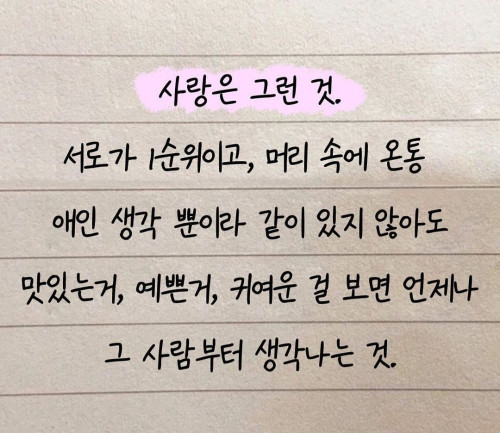 사랑은 그런 것.
서로가 1순위이고, 머리 속에 온통
애인 생각 뿐이라 같이 있지 않아도
맛있는거, 예쁜거, 귀여운 걸 보면 언제나
그 사람부터 생각나는 것.